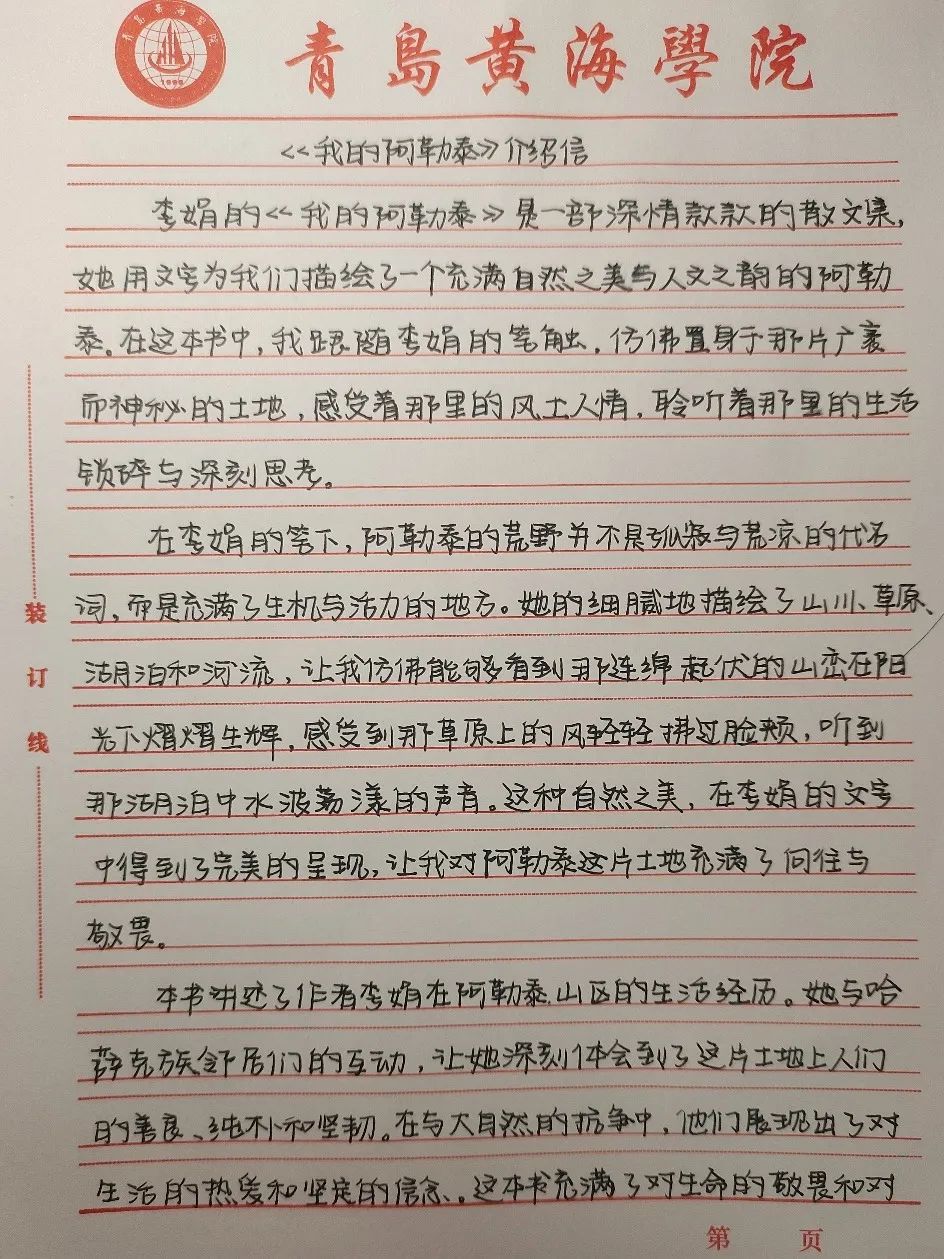 青島黄海學院
青島黄海學院
1996
《我的阿勒泰》介绍信
李娟的《我的阿勒泰》是一部深情款款的散文集,
她用文字为我们描绘了一个充满自然之美与人文之韵的阿勒
泰。在这本书中,我跟随李娟的笔触,仿佛置身于那片广袤
而神秘的土地,感受着那里的风土人情,聆听着那里的生活
锁碎与深刻思考。
在李娟的笔下,阿勒泰的荒野并不是孤寂与荒凉的代名
词,而是充满了生机与活力的地方。她的细腻地描绘了山川、草原、
湖泊和河流,让我仿佛能够看到那连绵起伏的山峦在阳
光下熠熠生辉,感受到那草原上的风轻轻拂过脸颊,听到
那湖泊中水波荡漾的声音。这种自然之美,在李娟的文字
中得到了完美的呈现,让我对阿勒泰这片土地充满了向往与
敬畏。
本书讲述了作者李娟在阿勒泰山区的生活经历。她与哈
萨克族邻居们的互动,让她深刻体会到了这片土地上人们
的善良、纯朴和坚韧。在与大自然的抗争中,他们展现出了对
生活的热爱和坚定的信念。这本书充满了对生命的敬畏和对
装
订
线
第 页